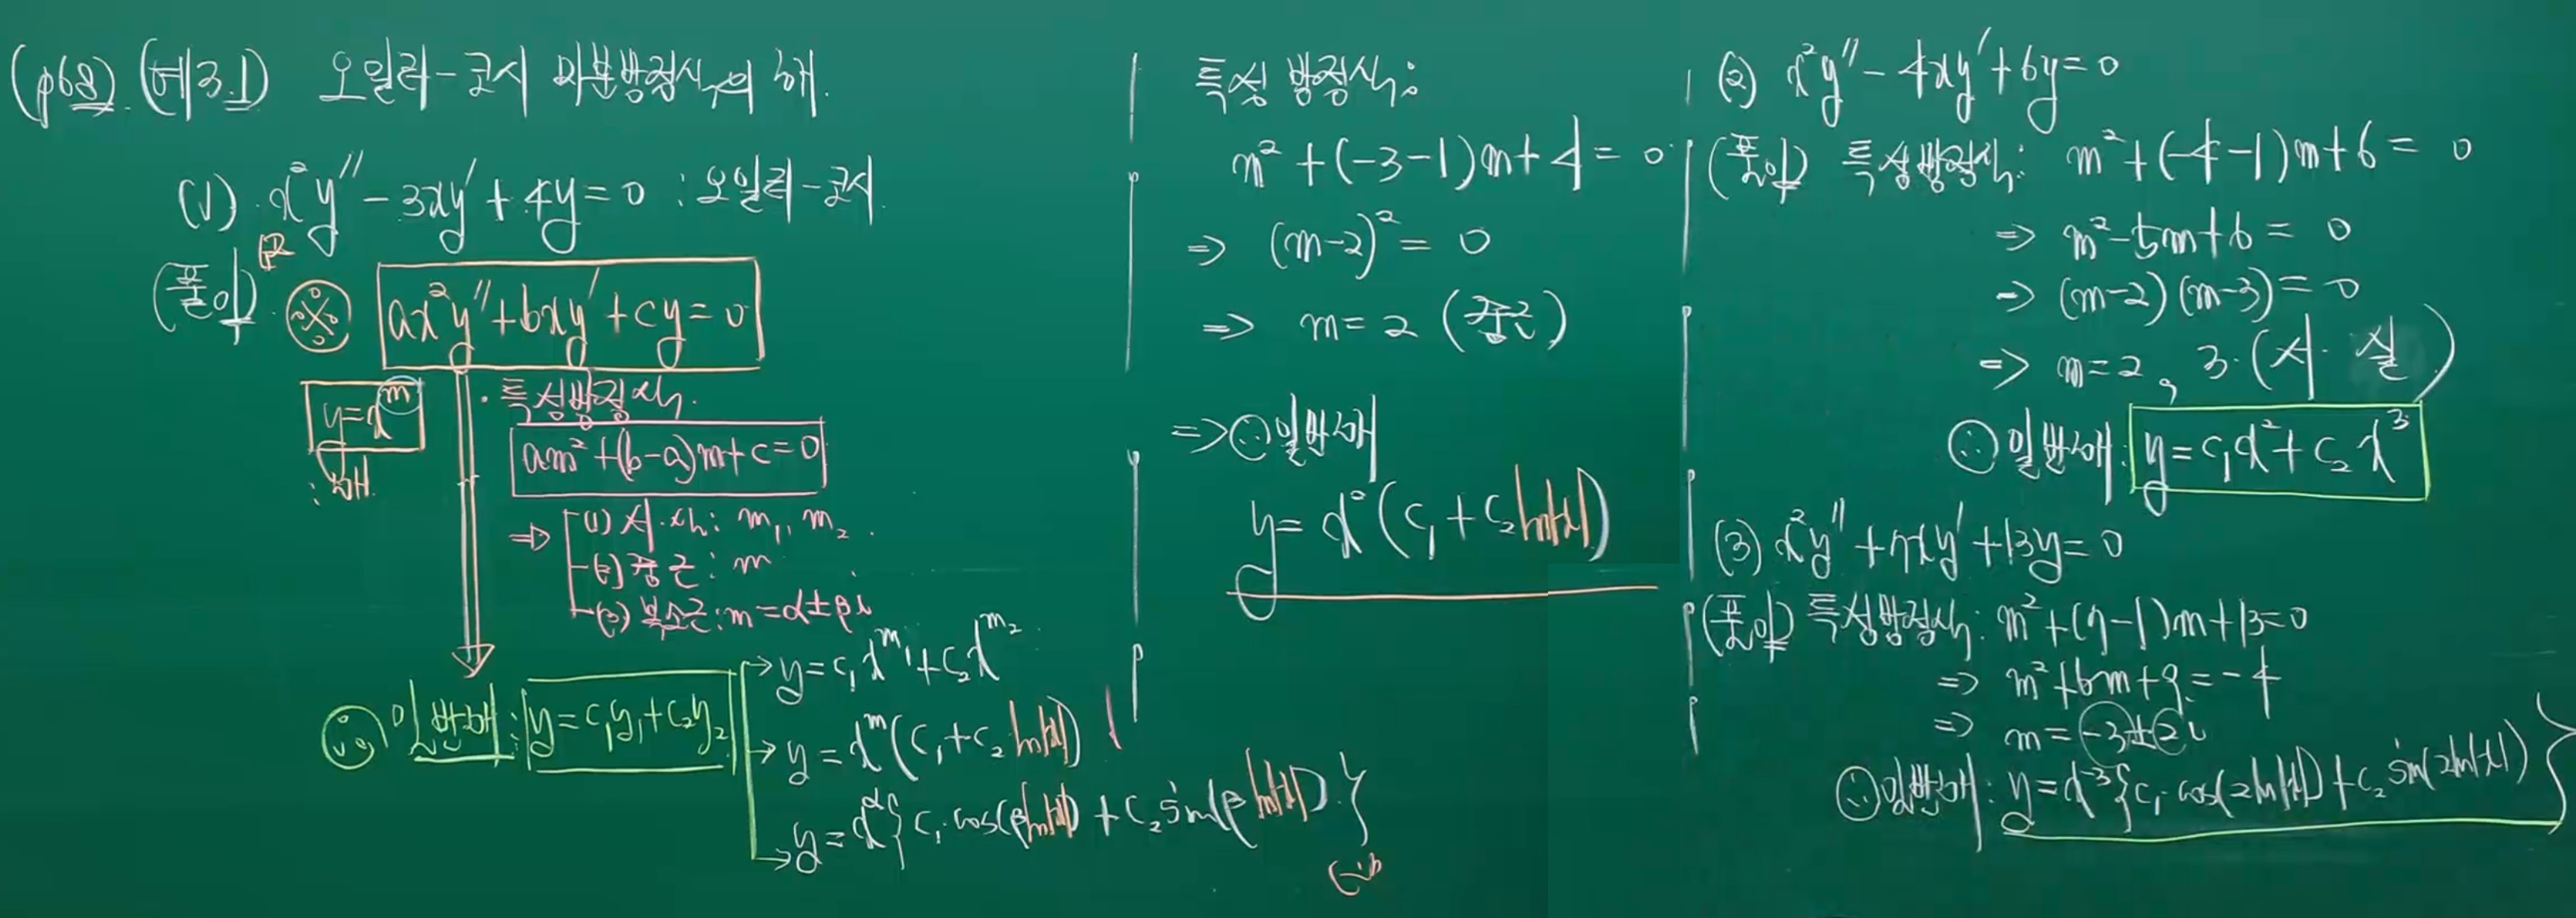 (p68). (예3.1) 오일러-코시 미분방정식의 해.
(1). x²y″ - 3xy′ + 4y = 0 : 오일러-코시.
(풀이).
ax²y″ + bxy′ + cy = 0
y = x^m
: 해.
· 특성방정식.
am² + (b-a)m + c = 0
⇒ (1) 서.실: m₁, m₂.
(2) 중근: m
(3) 복소근: m = α ± βi
∴ 일반해: y = c₁y₁ + c₂y₂
→ y = c₁x^m₁ + c₂x^m₂
→ y = x^m (c₁ + c₂ ln|x|)
→ y = x^α { c₁ cos(β ln|x|) + c₂ sin(β ln|x|) }
특성 방정식:
m² + (-3-1)m + 4 = 0
⇒ (m-2)² = 0
⇒ m = 2 (중근)
⇒ ∴ 일반해
y = x² (c₁ + c₂ ln|x|)
(2) x²y″ - 4xy′ + 6y = 0
(풀이) 특성방정식: m² + (-4-1)m + 6 = 0
⇒ m² - 5m + 6 = 0
⇒ (m-2)(m-3) = 0
⇒ m = 2, 3. (서. 실)
∴ 일반해: y = c₁x² + c₂x³
(3) x²y″ + 7xy′ + 13y = 0
(풀이) 특성방정식: m² + (7-1)m + 13 = 0
⇒ m² + 6m + 9 = -4
⇒ m = -3 ± 2i
∴ 일반해: y = x⁻³ { c₁ cos(2ln|x|) + c₂ sin(2ln|x|) }